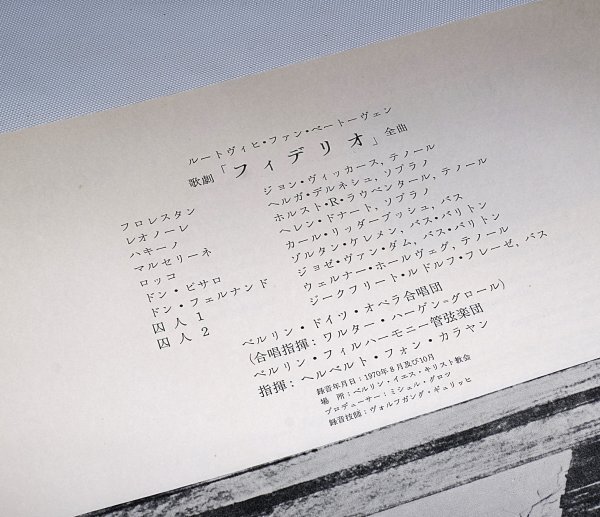 ルートヴィヒ・ファン・ベートーヴェン
歌劇「フィデリオ」全曲
フロレスタン ジョン・ヴィッカース, テノール
レオノーレ ヘルガ・デルネシュ, ソプラノ
ハキーノ ホルスト・R・ラウベンタール, テノール
マルセリーネ ヘレン・ドナート, ソプラノ
ロッコ カール・リッダーブッシュ, バス
ドン・ピサロ ゾルタン・ケレメン, バス・バリトン
ドン・フェルナンド ジョゼ・ヴァン・ダム, バス・バリトン
囚人 1 ウェルナー・ホルヴェグ, テノール
囚人 2 ジークフリート・ルドルフ・フレーゼ, バス
ベルリン・ドイツ・オペラ合唱団
(合唱指揮: ワルター・ハーゲン=グロール)
ベルリン・フィルハーモニー管弦楽団
指揮: ヘルベルト・フォン・カラヤン
録音年月日: 1970年8月及び10月
場 所: ベルリン・イエス・キリスト教会
プロデューサー: ミシェル・グロッ
録音技師: ヴォルフガング・ギュリッヒ